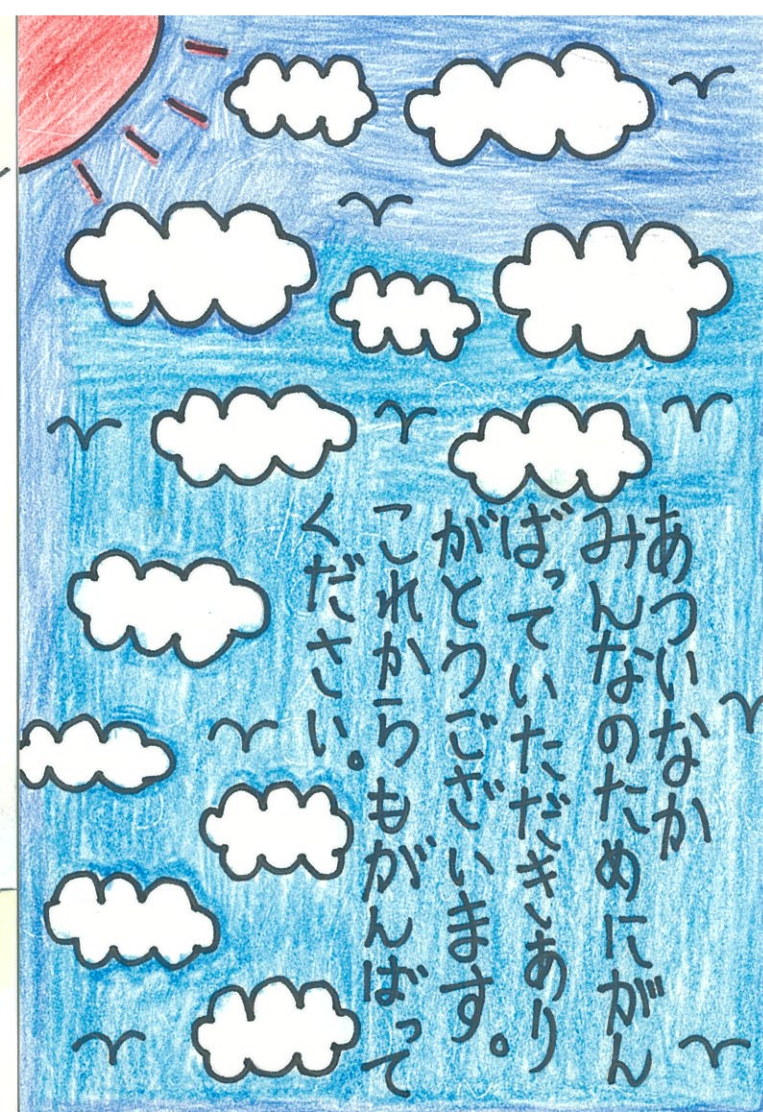 あついなか
みんなのためにがん
ばっていただきあり
がとうございます。
これからもがんばって
ください。